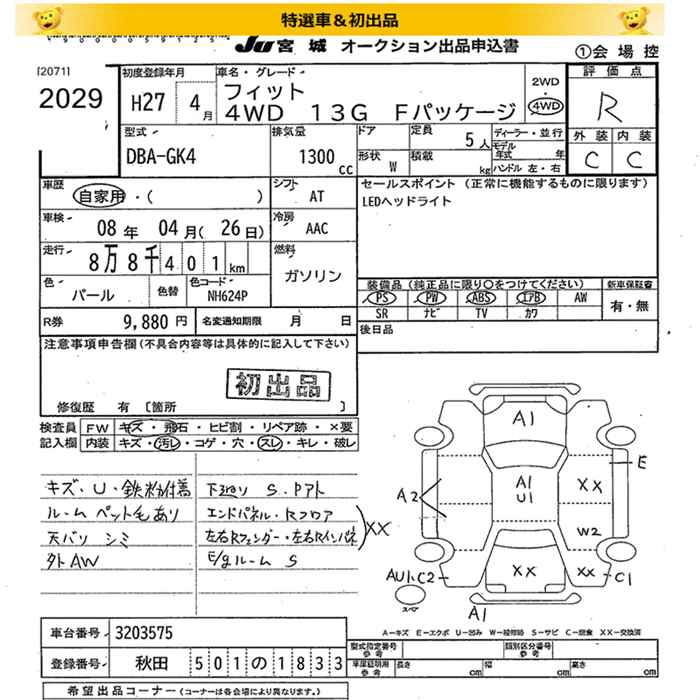 特選車＆初出品
JU 宮城 オークション出品申込書
①会場控
[2071]
2029
初度登録年月
H27 4月
車名・グレード
フィット
4WD 13G Fパッケージ
2WD
・
4WD
評価点
R
外装 内装
C C
型式
DBA-GK4
排気量
1300 cc
ドア
形状 W
定員 5人
積載 kg
ディーラー・並行
モデル年式 年
ハンドル 左・右
車歴
自家用・( )
シフト
AT
セールスポイント (正常に機能するものに限ります)
LEDヘッドライト
車検
08年 04月(26日)
冷房
AAC
走行
8万8千401km
燃料
ガソリン
色
パール
色替
色コード
NH624P
装備品 (純正品に限り○をつけてください)
新車保証書
PS PW ABS エアB AW
SR ナビ TV カワ
有・無
R券 9,880円
名変通知期限 月 日
後日品
注意事項申告欄(不具合内容等は具体的に記入して下さい)
初出品
修復歴 有 [箇所 ]
検査員記入欄
FW キズ・飛石・ヒビ割・リペア跡・×要
内装 キズ・汚レ・コゲ・穴・スレ・キレ・破レ
キズ・U・鉄粉付着
ルーム ペット毛あり
天バリ シミ
外AW
下廻り S・Pアト
エンドパネル・Rフロア
左右Rフェンダー・左右Rインパネ
XX
E/gルーム S
A1
E
A2
A1
U1
XX
W2
AU1・C2
XX
XX
C1
スペア
A1
A－キズ E－エクボ U－凹み W－補修跡 S－サビ C－腐食 XX－交換済
車台番号 3203575
登録番号 秋田 501の1833
型式指定番号 参考
類別区分番号 参考
車庫証明用 参考
長さ cm 幅 cm 高さ cm
希望出品コーナー (コーナーは各会場により異なります。)